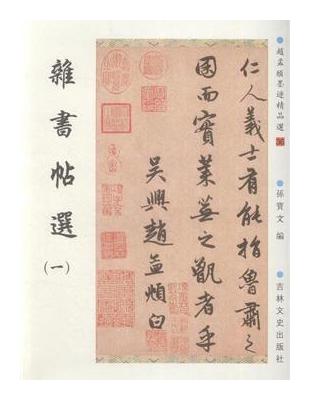 趙孟頫墨迹精品選
36
孫寶文 編
吉林文史出版社
仁人義士有能指魯肅之
囷而實萊蕪之甑者乎
吳興趙孟頫白
雜書帖選
(一)